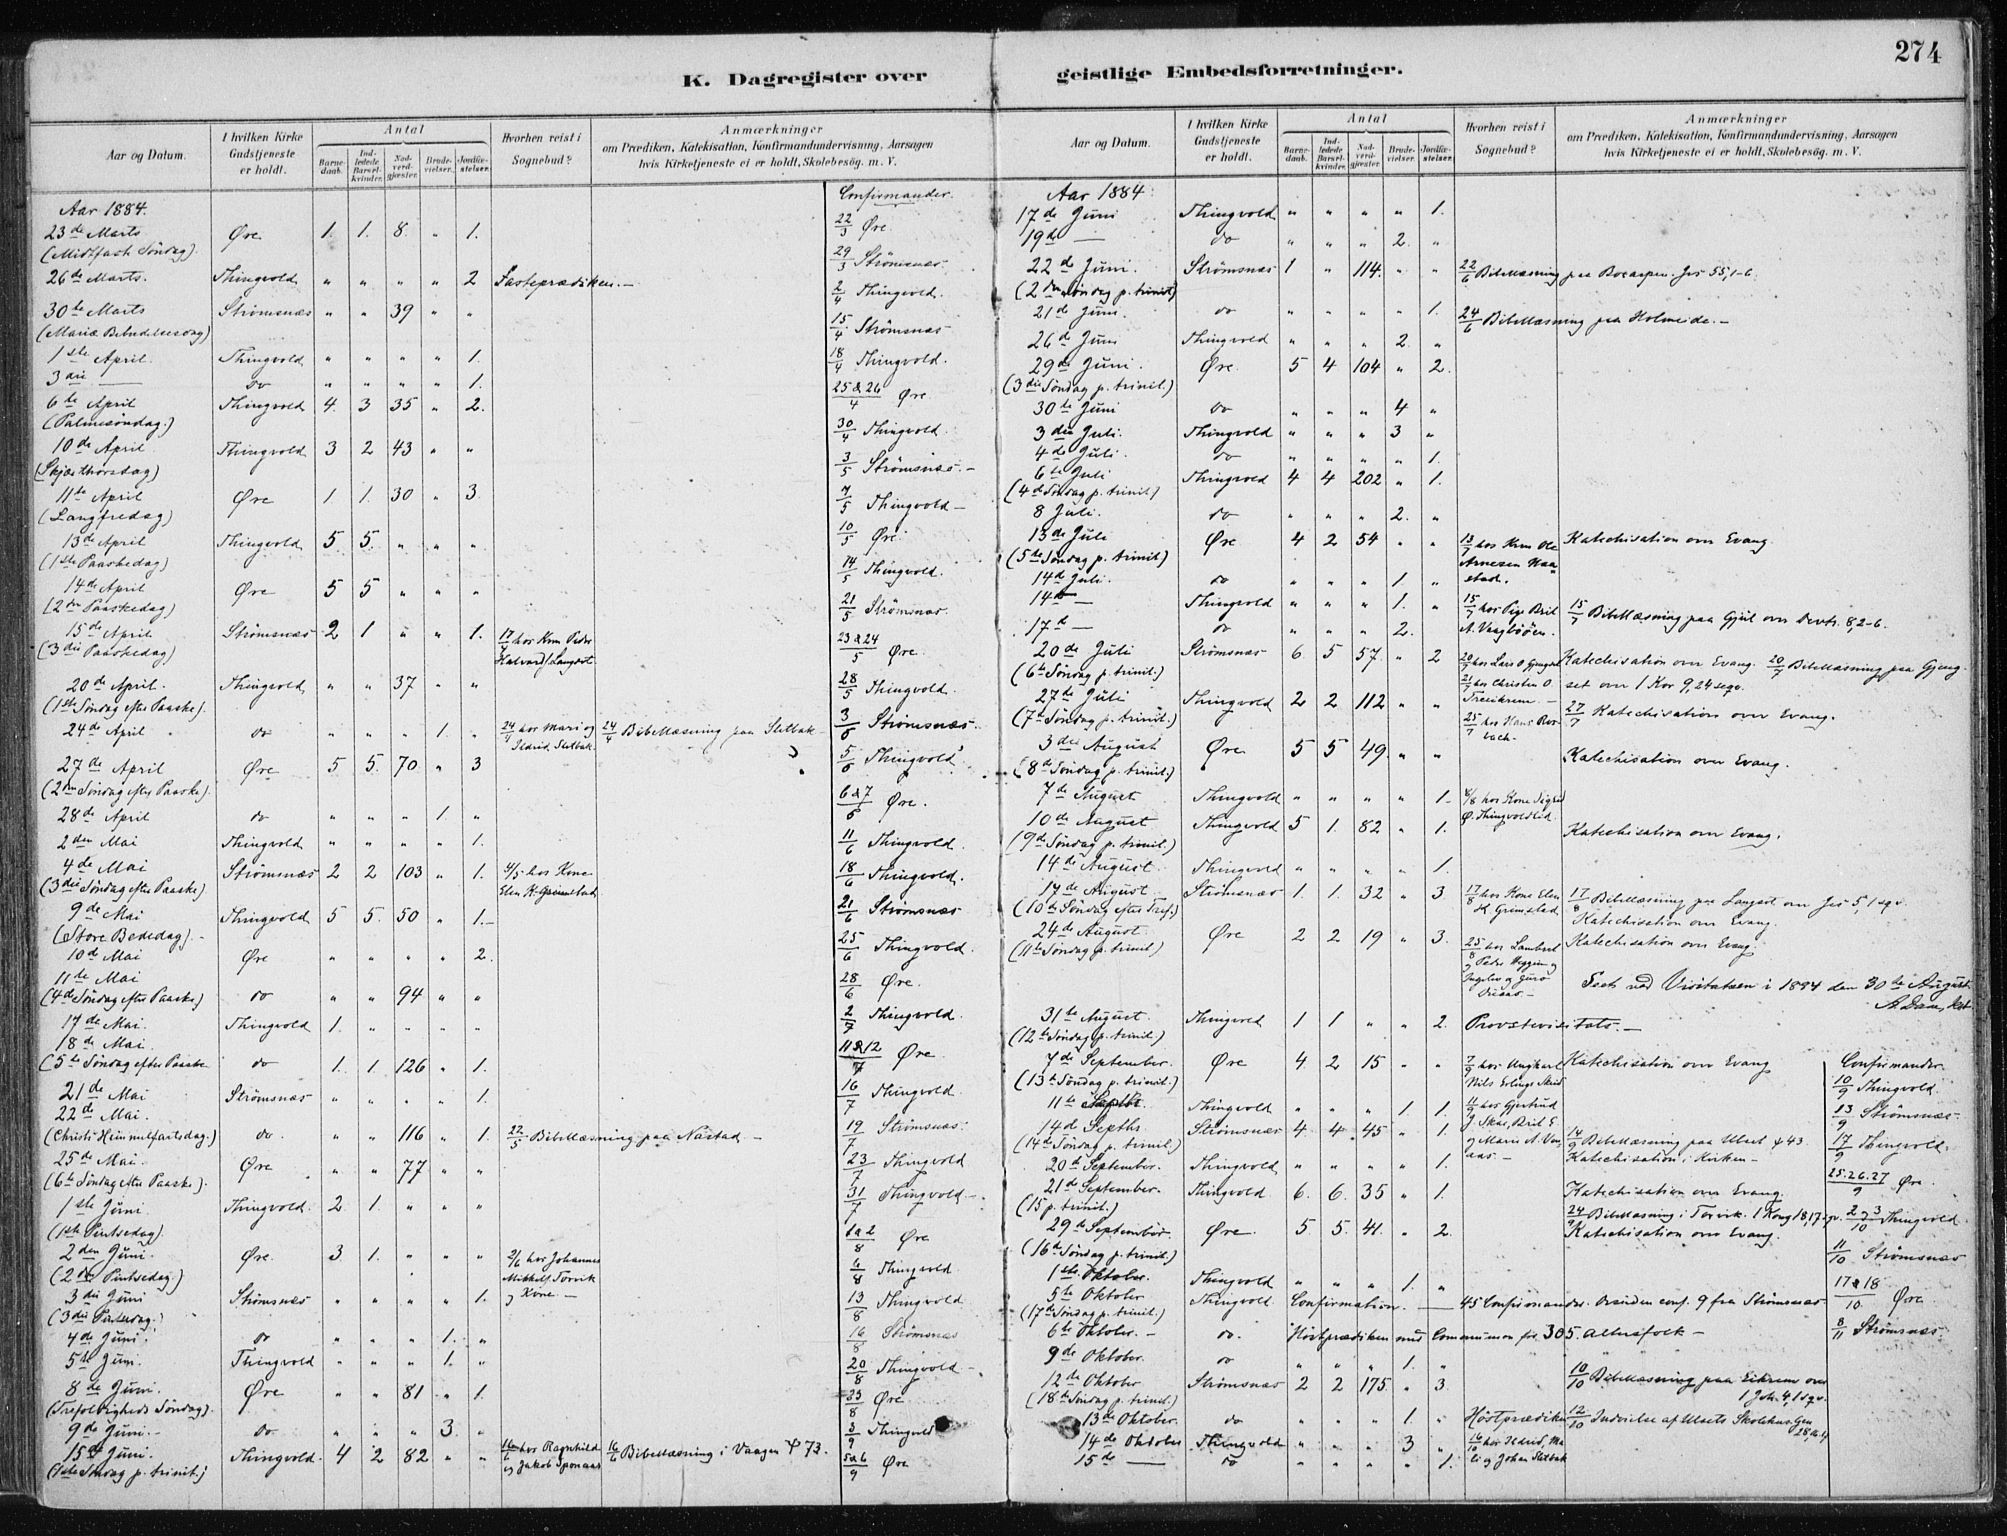 274
K. Dagregister over geistlige Embedsforretninger.
Aar og Datum. | I hvilken Kirke Gudstjeneste er holdt. | Antal | Barne-daab. | Ind-ledede Barsel-kvinder. | Nad-verd-gjæster. | Brude-vielser. | Jordfæ-stelser. | Hvorhen reist i Sognebud? | Anmærkninger om Prædiken, Katekisation, Konfirmandundervisning, Aarsagen hvis Kirketjeneste ei er holdt, Skolebesøg. m. V.
Aar 1884. Confirmander.
23de Marts Øre 1. 1. 8. " 1. 22/3 Øre.
(Midtfaste Søndag) 29/3 Strømsnæs
26de Marts. Thingvold " " " " 2 Fasteprædiken. 2/4 Thingvold.
30te Marts Strømsnæs " " 39 " "
(Mariæ Bebudelsesdag) 15/4 Strømsnæs
1ste April. Thingvold " " " " 1. 18/4 Thingvold.
3die — do " " " " 1. 25 & 26/4 Øre
6te April Thingvold 4. 3 35 " 2.
(Palmesøndag.) 30/4 Thingvold.
10de April Thingvold 3 2 43 " "
(Skjærthorsdag) 3/5 Strømsnæs.
11te April Øre 1. 1. 30 " 3 7/5 Thingvold
(Langfredag) 10/5 Øre.
13de April Thingvold 5. 5. " " "
(1ste Paaskedag) 14/5 Thingvold.
14de April Øre 5 5 " " "
(2den Paaskedag) 21/5 Strømsnæs.
15de April Strømsnæs 2 1 " " 1. 17/4 hos Peder Halvards. Langset 23 & 24/5 Øre
(3die Paaskedag)
20de April. Thingvold " " 37 " " 28/5 Thingvold.
(1ste Søndag efter Paaske).
24de April do " " " 1. " 24/4 hos Mari og Ildrid Sletbak 24/4 Bibellæsning paa Sletbak 3/6 Strømsnæs.
27de April Øre 5 5. 70 " 3 5/6 Thingvold
(2den Søndag efter Paaske).
28de April do " " " 1. " 6 & 7/6 Øre.
2den Mai Thingvold " " " " 1. 11/6 Thingvold.
4de Mai Strømsnæs 2 2 103 " 1. 4/5 hos Kone Elen K. Grimstad 18/6 Thingvold.
(3die Søndag efter Paaske)
9de Mai Thingvold 5 5. 50 " 1. 21/6 Strømsnæs
(Store Bededag). 25/6 Thingvold.
10de Mai Øre " " " " 2.
11te Mai 28/6 Øre.
(4de Søndag efter Paaske) do " " 94 " "
17de Mai. Thingvold 1. " " " " 2/7 Thingvold.
18de Mai. 11 & 12/7 Øre
(5te Søndag efter Paaske do 1. 1. 126 " 1.
21de Mai Strømsnæs " " " " 1. 16/7 Thingvold.
22de Mai. 19/7 Strømsnæs.
(Christi Himmelfartsdag.) do. " " 116 " 1. 22/5 Bibellæsning paa Nastad
25de Mai. Øre " " 77 " " 23/7 Thingvold
(6te Søndag efter Paaske). 31/7 Thingvold.
1ste Juni Thingvold. 2 1. " " "
(1ste Pintsedag) 1 & 2/8 Øre
2den Juni. Øre. 3 1. " " " 2/6 hos Johannes Mikkels. Torvik og Kone 6/8 Thingvold.
(2den Pintsedag)
3die Juni Strømsnæs " " " " 1. 13/8 Thingvold
(3die Pintsedag.)
4de Juni. do " " " 1. " 16/8 Strømsnæs
5te Juni. Thingvold " " " 1. " 20/8 Thingvold
8de Juni. Øre " " 81 " 1. 23/8 Øre
(Trefoldigheds Søndag).
9de Juni. do. " " " 3. " 3/9 Thingvold
15de Juni. Thingvold. 4 2 82 " " 16/6 hos Ragnhild og Jakob 16/6 Bibellæsning i Vaagen ψ 73. 5 & 6/9 Øre
(1ste Søndag p. trinit.)
Aar og Datum. | I hvilken Kirke Gudstjeneste er holdt. | Antal | Barne-daab. | Ind-ledede Barsel-kvinder. | Nad-verd-gjæster. | Brude-vielser. | Jordfæ-stelser. | Hvorhen reist i Sognebud? | Anmærkninger om Prædiken, Katekisation, Konfirmandundervisning, Aarsagen hvis Kirketjeneste ei er holdt, Skolebesøg. m. V.
Aar 1884.
17de Juni Thingvold " " " " 1.
19de — do " " " 2. "
22de Juni. Strømsnæs 1 " 114. " " 22/6 Bibellæsning paa Jes 55, 1-6.
(2den Søndag p. trinit)
21de Juni. do " " " " 1. 24/6 Bibellæsning paa Holmeide.
26de Juni Thingvold " " " 2. "
29de Juni. Øre. 5 4 104 " 2.
(3die Søndag p. trinit.)
30te Juni do " " " 4 "
3die Juli. Thingvold " " " 3 "
4de Juli. do " " " " 1.
6te Juli Thingvold 4 4 202 " 1.
(4de Søndag p. trinit)
8 Juli. do " " " 2. "
13de Juli Øre 4 2 54 " " 13/7 hos Ole Arnesen stad. Katechisation over Evang.
(5te Søndag p. trinit)
14de Juli. do " " " 1. "
14de — Thingvold " " " 1. " 15/7 hos Pige Brit A. Vaagbøen. 15/7 Bibellæsning paa Gjul over Devtr. 8, 2-6.
17de — do " " " 2. "
20de Juli Strømsnæs 6 5 57. " 2 20/7 hos Lars O. Gjengset 21/7 hos Christen O. Katechisation over Evang. 20/7 Bibellæsning paa Gjeng-
(6te Søndag p. trinit.) set over 1 Kor 9, 24 sqv.
27de Juli Thingvold 2 2 112 " " 25/7 hos Hans 27/7 Katechisation over Evang.
(7de Søndag p. trinit.)
3die August Øre 5 5 49. " " Katechisation over Evang.
(8de Søndag p. trinit.)
7de August Thingvold " " " " 1. 6/8 hos Kone Sigrid O. Thingvoldlid.
10de August Thingvold 5 1. 82 " 1. Katechisation over Evang.
(9de Søndag p. trinit.)
14de August Thingvold " " " " 1.
17de August Strømsnæs 1. 1. 32 " 3 17/8 hos Kone Elen K. Grimstad 17/8 Bibellæsning paa Langset over Jes 5, 1 sqv.
(10de Søndag efter Tref.) Katechisation over Evang.
24de August Øre 2 2 19 " 3. 25/8 hos Lambert Katechisation over Evang.
(11te Søndag p. trinit)
Seet ved Visitatsen i 1884 den 30te August
31te August. Thingvold 1 1 " " 2. Provstevisitats.
(12te Søndag p. trinit.)
7de September. Øre 4 2 15 " " 7/9 hos Ungkarl Nils Erlings. Katechisation over Evang Confirmander.
(13de Søndag p. trinit.) 10/9 Thingvold.
11te Septbr. Thingvold " " " 1 1. 11/9 hos Gjertrud 13/9 Strømsnæs
14de Septbr. Strømsnæs 4 4 45 " 1. 14/9 Bibellæsning paa Ulset ψ 43. 17/9 Thingvold.
(14de Søndag p. trinit.) Katechisation i Kirken
20de September. Thingvold " " " " 1. 25. 26. 27/9 Øre.
21de September. Thingvold 6. 6. 35 " 1. Katechisation over Evang.
(15 p. trinit.) 24/9 Bibellæsning i Torvik. 1 Kong 18, 17 2 & 3/10 Thingvold.
29de September Øre 5. 5. 41. " 2. Katechisation over Evang.
(16de Søndag p. trinit.) 11/10 Strømsnæs
1ste Oktober. Thingvold " " " 1. " 17 & 18/10 Øre
5te Oktober Thingvold Confirmation. — 45 Confirmander. conf. 9 fra Strømsnæs
(17de Søndag p. trinit.)
6te Oktober. do. Høstprædiken med Communion for 305. altersfolk 8/11 Strømsnæs
9de Oktober. do " " " 1. "
12te Oktober Strømsnæs 2 2 175. " 3. 10/10 Bibellæsning paa Eikrem over
(18de Søndag p. trinit.) 1 Joh. 4, 1 sqv.
13de Oktober. do " " " 1. " Høstprædiken 12/10 Indvielse af Ulsets Skolehus. Gen
14de Oktober Thingvold " " " 3 " 16/10 hos Ildrid, Ma-
15de — do " " " " 1. li og Johan Sletbak